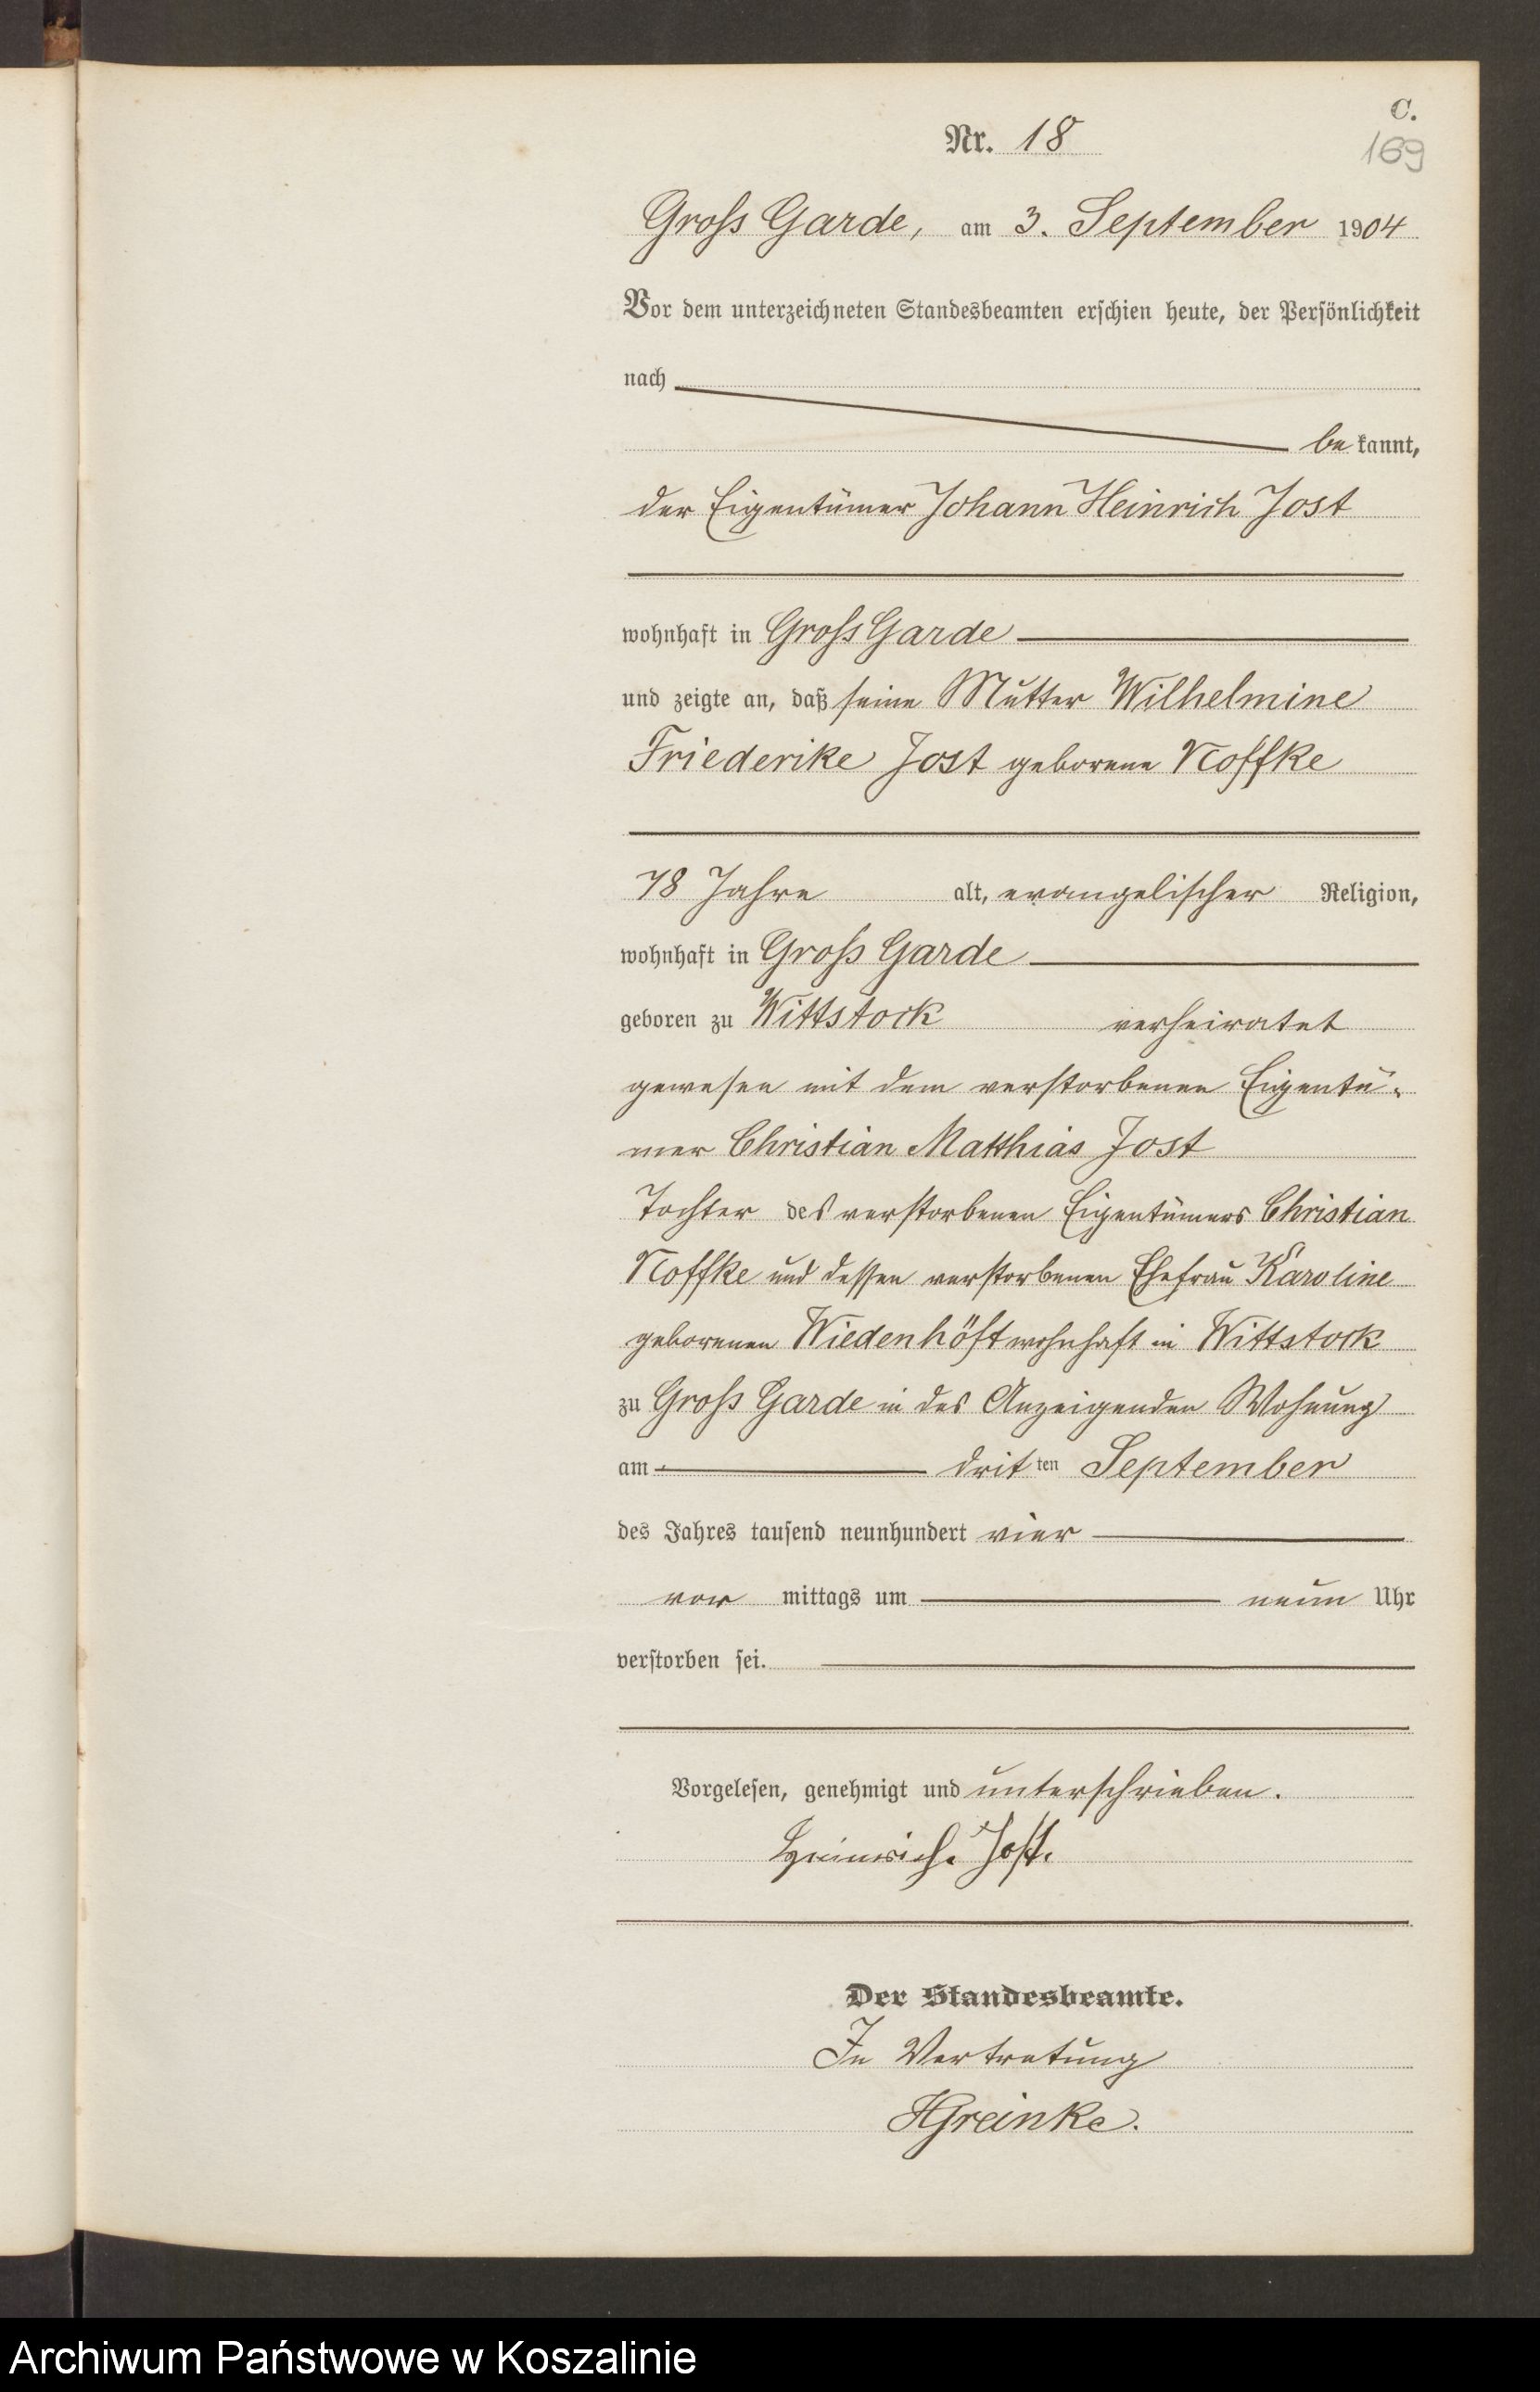 C.
Nr. 18
169
Gross Garde, am 3. September 1904
Vor dem unterzeichneten Standesbeamten erschien heute, der Persönlichkeit
nach
be kannt,
der Eigentümer Johann Heinrich Jost
wohnhaft in Gross Garde
und zeigte an, daß seine Mutter Wilhelmine
Friederike Jost geborene Noffke
78 Jahre alt, evangelischer Religion,
wohnhaft in Gross Garde
geboren zu Wittstock verheiratet
gewesen mit dem verstorbenen Eigentü-
mer Christian Matthias Jost
Tochter des verstorbenen Eigentümers Christian
Noffke und dessen verstorbenen Ehefrau Karoline
geborenen Wiedenhöft wohnhaft in Wittstock
zu Gross Garde in des Anzeigenden Wohnung
am drit ten September
des Jahres tausend neunhundert vier
vor mittags um neun Uhr
verstorben sei.
Vorgelesen, genehmigt und unterschrieben.
Heinrich Jost.
Der Standesbeamte.
In Vertretung
HGreinke.
Archiwum Państwowe w Koszalinie